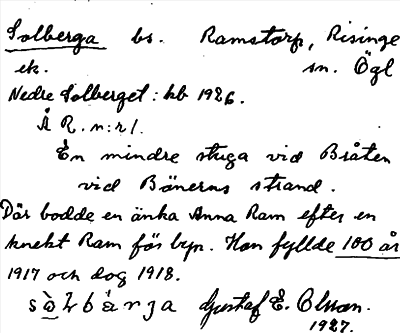 Solberga bs. Ramstorp, Risinge
ek. sn. Ögl
Nedre Solberget: hb 1926.
Å R. n:r 1.
En mindre stuga vid Bråten
vid Bönerns strand.
Där bodde en änka Anna Ram efter en
knekt Ram för byn. Hon fyllde 100 år
1917 och dog 1918.
Gustaf E. Olsson.
1927.